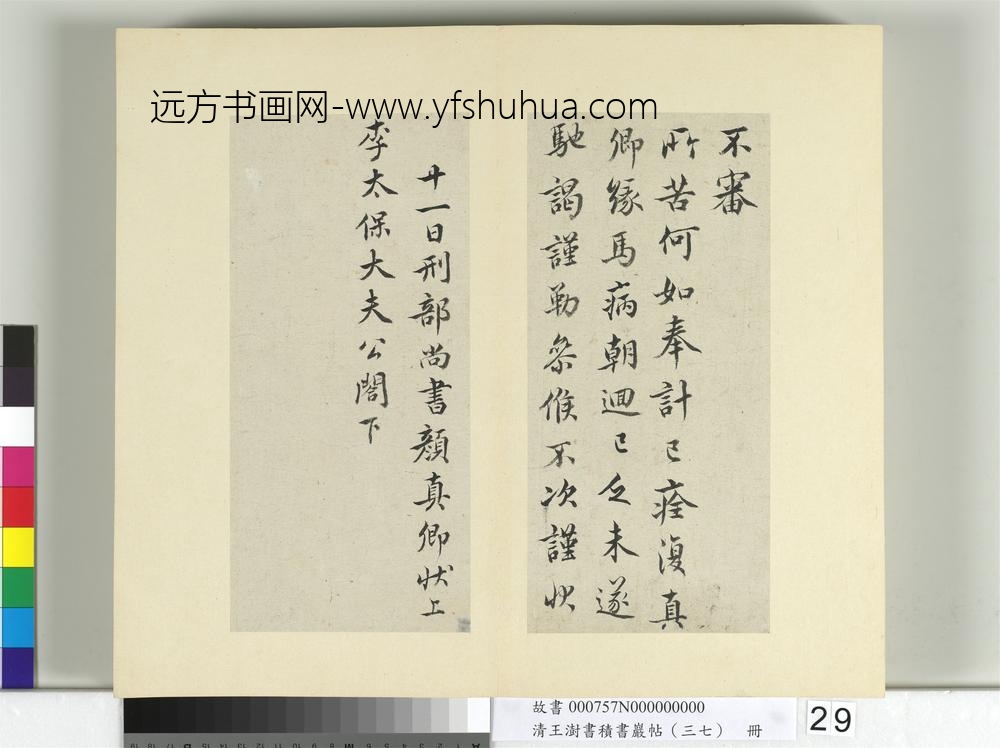 远方书画网-www.yfshuhua.com
不審
所苦何如奉計已痊復真
卿緣馬病朝迴已乏未遂
馳謁謹勒參候不次謹狀
廿一日刑部尚書顏真卿狀上
李太保大夫公閤下
故書 000757N000000000
清王澍書積書巖帖（三七） 冊
29